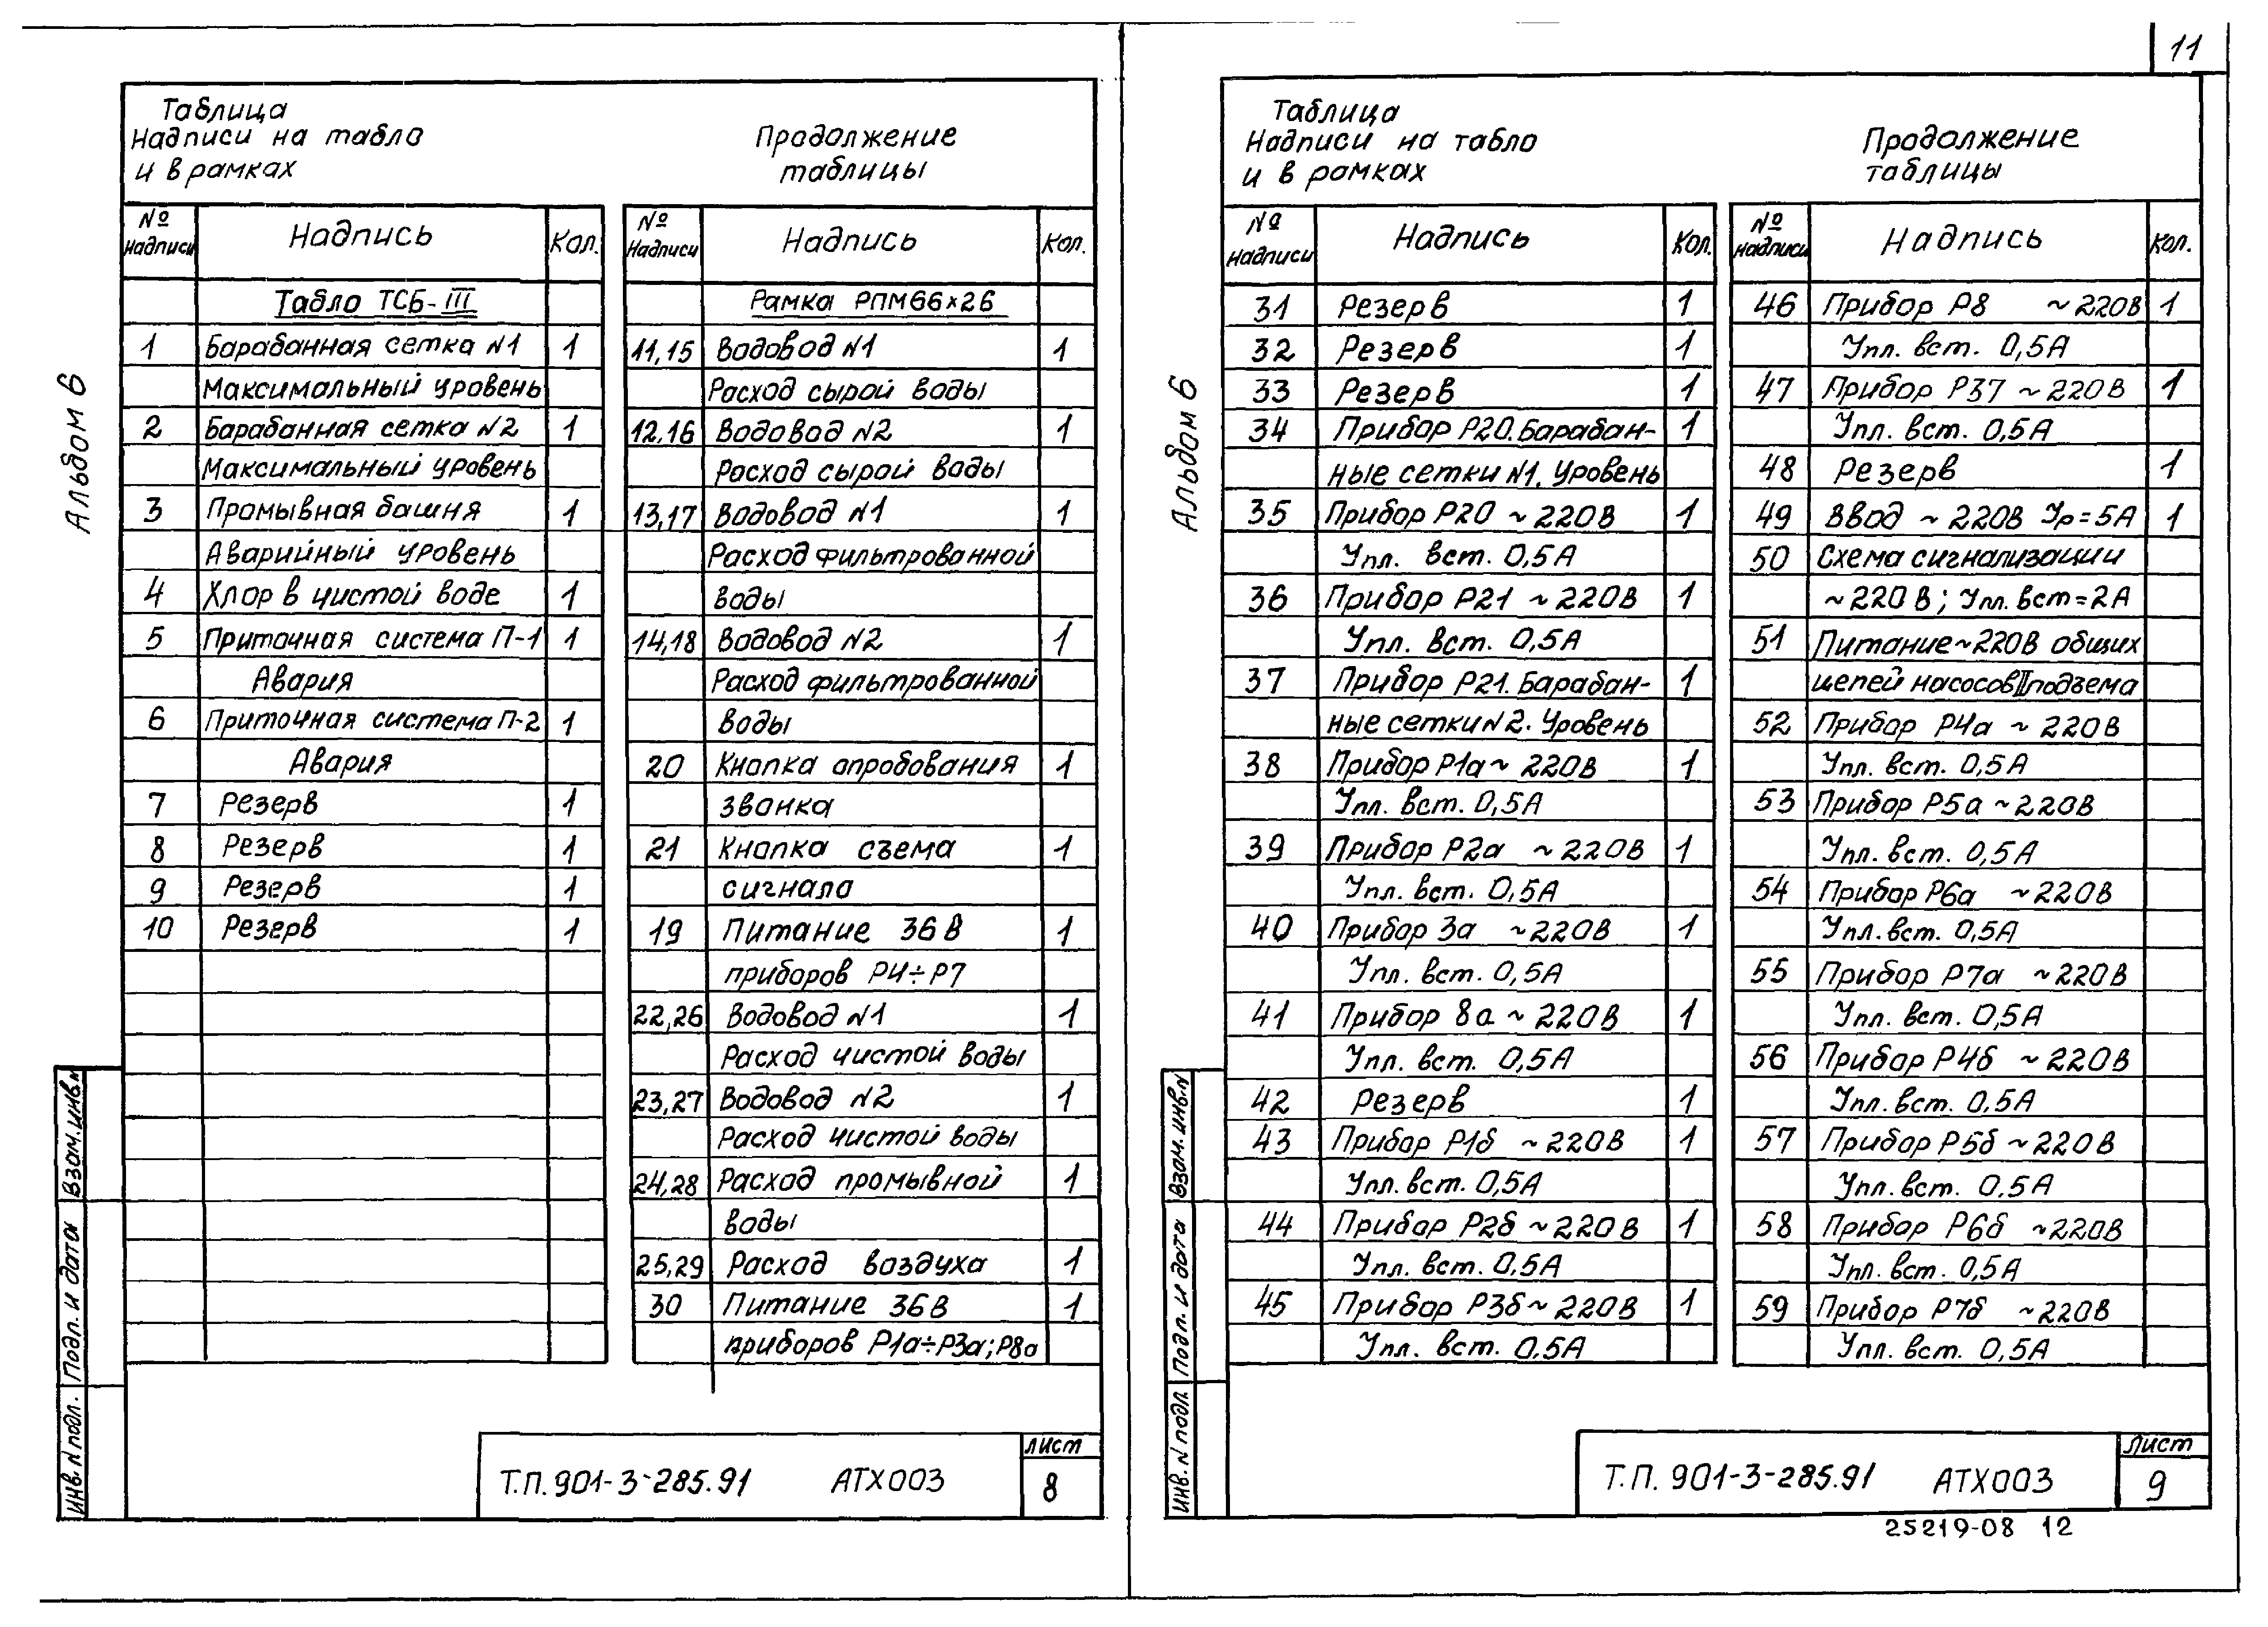 11
Альбом 6
Таблица
Надписи на табло
и в рамках
Продолжение
таблицы
№ надписи Надпись Кол.
Табло ТСБ-III
1 Барабанная сетка N1 1
Максимальный уровень
2 Барабанная сетка N2 1
Максимальный уровень
3 Промывная башня 1
Аварийный уровень
4 Хлор в чистой воде 1
5 Приточная система П-1 1
Авария
6 Приточная система П-2 1
Авария
7 Резерв 1
8 Резерв 1
9 Резерв 1
10 Резерв 1
№ надписи Надпись Кол.
Рамка РПМ66×26
11,15 Водовод N1 1
Расход сырой воды
12,16 Водовод N2 1
Расход сырой воды
13,17 Водовод N1 1
Расход фильтрованной
воды
14,18 Водовод N2 1
Расход фильтрованной
воды
20 Кнопка опробования 1
звонка
21 Кнопка съема 1
сигнала
19 Питание 36В 1
приборов Р4÷Р7
22,26 Водовод N1 1
Расход чистой воды
23,27 Водовод N2 1
Расход чистой воды
24,28 Расход промывной 1
воды
25,29 Расход воздуха 1
30 Питание 36В 1
приборов Р1а÷Р3а; Р8а
Взам. инв. N
Подп. и дата
Инв. N подл.
Т.П. 901-3-285.91 АТХ003
лист
8
Альбом 6
Таблица
Надписи на табло
и в рамках
Продолжение
таблицы
№ надписи Надпись Кол.
31 Резерв 1
32 Резерв 1
33 Резерв 1
34 Прибор Р20. Барабан- 1
ные сетки N1. Уровень
35 Прибор Р20 ~ 220В 1
Упл. вст. 0,5А
36 Прибор Р21 ~ 220В 1
Упл. вст. 0,5А
37 Прибор Р21. Барабан- 1
ные сетки N2. Уровень
38 Прибор Р1а ~ 220В 1
Упл. вст. 0,5А
39 Прибор Р2а ~ 220В 1
Упл. вст. 0,5А
40 Прибор 3а ~ 220В 1
Упл. вст. 0,5А
41 Прибор 8а ~ 220В 1
Упл. вст. 0,5А
42 Резерв 1
43 Прибор Р1б ~ 220В 1
Упл. вст. 0,5А
44 Прибор Р2б ~ 220В 1
Упл. вст. 0,5А
45 Прибор Р3б ~ 220В 1
Упл. вст. 0,5А
№ надписи Надпись Кол.
46 Прибор Р8 ~ 220В 1
Упл. вст. 0,5А
47 Прибор Р37 ~ 220В 1
Упл. вст. 0,5А
48 Резерв 1
49 Ввод ~ 220В Ур = 5А 1
50 Схема сигнализации
~ 220В; Упл. вст = 2А
51 Питание ~ 220В общих
цепей насосов II подъема
52 Прибор Р4а ~ 220В
Упл. вст. 0,5А
53 Прибор Р5а ~ 220В
Упл. вст. 0,5А
54 Прибор Р6а ~ 220В
Упл. вст. 0,5А
55 Прибор Р7а ~ 220В
Упл. вст. 0,5А
56 Прибор Р4б ~ 220В
Упл. вст. 0,5А
57 Прибор Р5б ~ 220В
Упл. вст. 0,5А
58 Прибор Р6б ~ 220В
Упл. вст. 0,5А
59 Прибор Р7б ~ 220В
Упл. вст. 0,5А
Взам. инв. N
Подп. и дата
Инв. N подл.
Т.П. 901-3-285.91 АТХ003
лист
9
25219-08 12